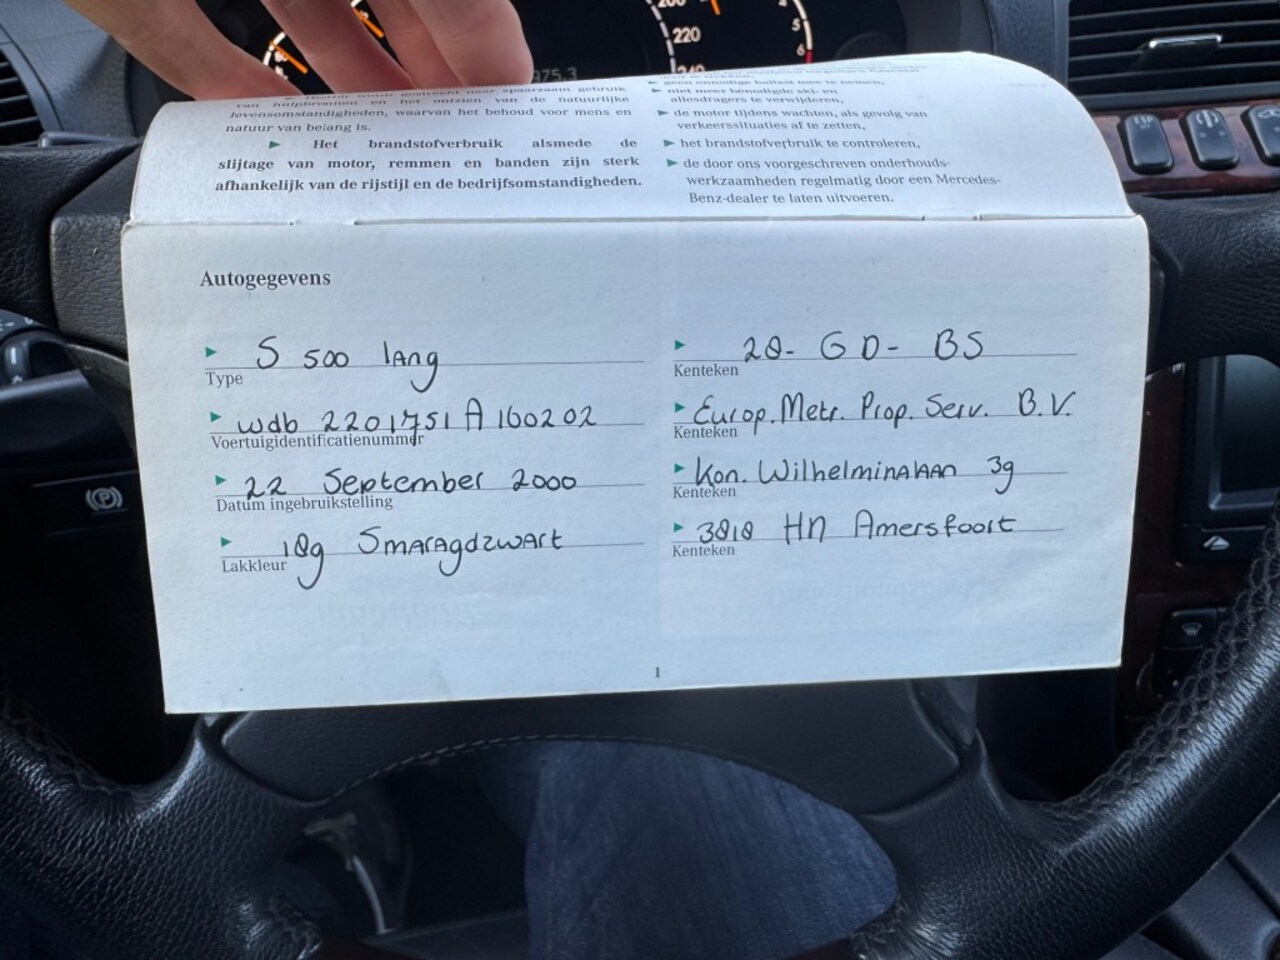 220
5
6
975.3
van hulpbronnen en het ontzien van de natuurlijke
levensomstandigheden, waarvan het behoud voor mens en
natuur van belang is.
► Het brandstofverbruik alsmede de
slijtage van motor, remmen en banden zijn sterk
afhankelijk van de rijstijl en de bedrijfsomstandigheden.
► niet meer benodigde ski- en
allesdragers te verwijderen,
► de motor tijdens wachten, als gevolg van
verkeerssituaties af te zetten,
► het brandstofverbruik te controleren,
► de door ons voorgeschreven onderhouds-
werkzaamheden regelmatig door een Mercedes-
Benz-dealer te laten uitvoeren.
Autogegevens
► S 500 lang
Type
► wdb 2201751A160202
Voertuigidentificatienummer
► 22 September 2000
Datum ingebruikstelling
► 189 Smaragdzwart
Lakkleur
► 28-GD-BS
Kenteken
► Europ. Metr. Prop. Serv. B.V.
Kenteken
► Kon. Wilhelminalaan 39
Kenteken
► 3818 HN Amersfoort
Kenteken
1